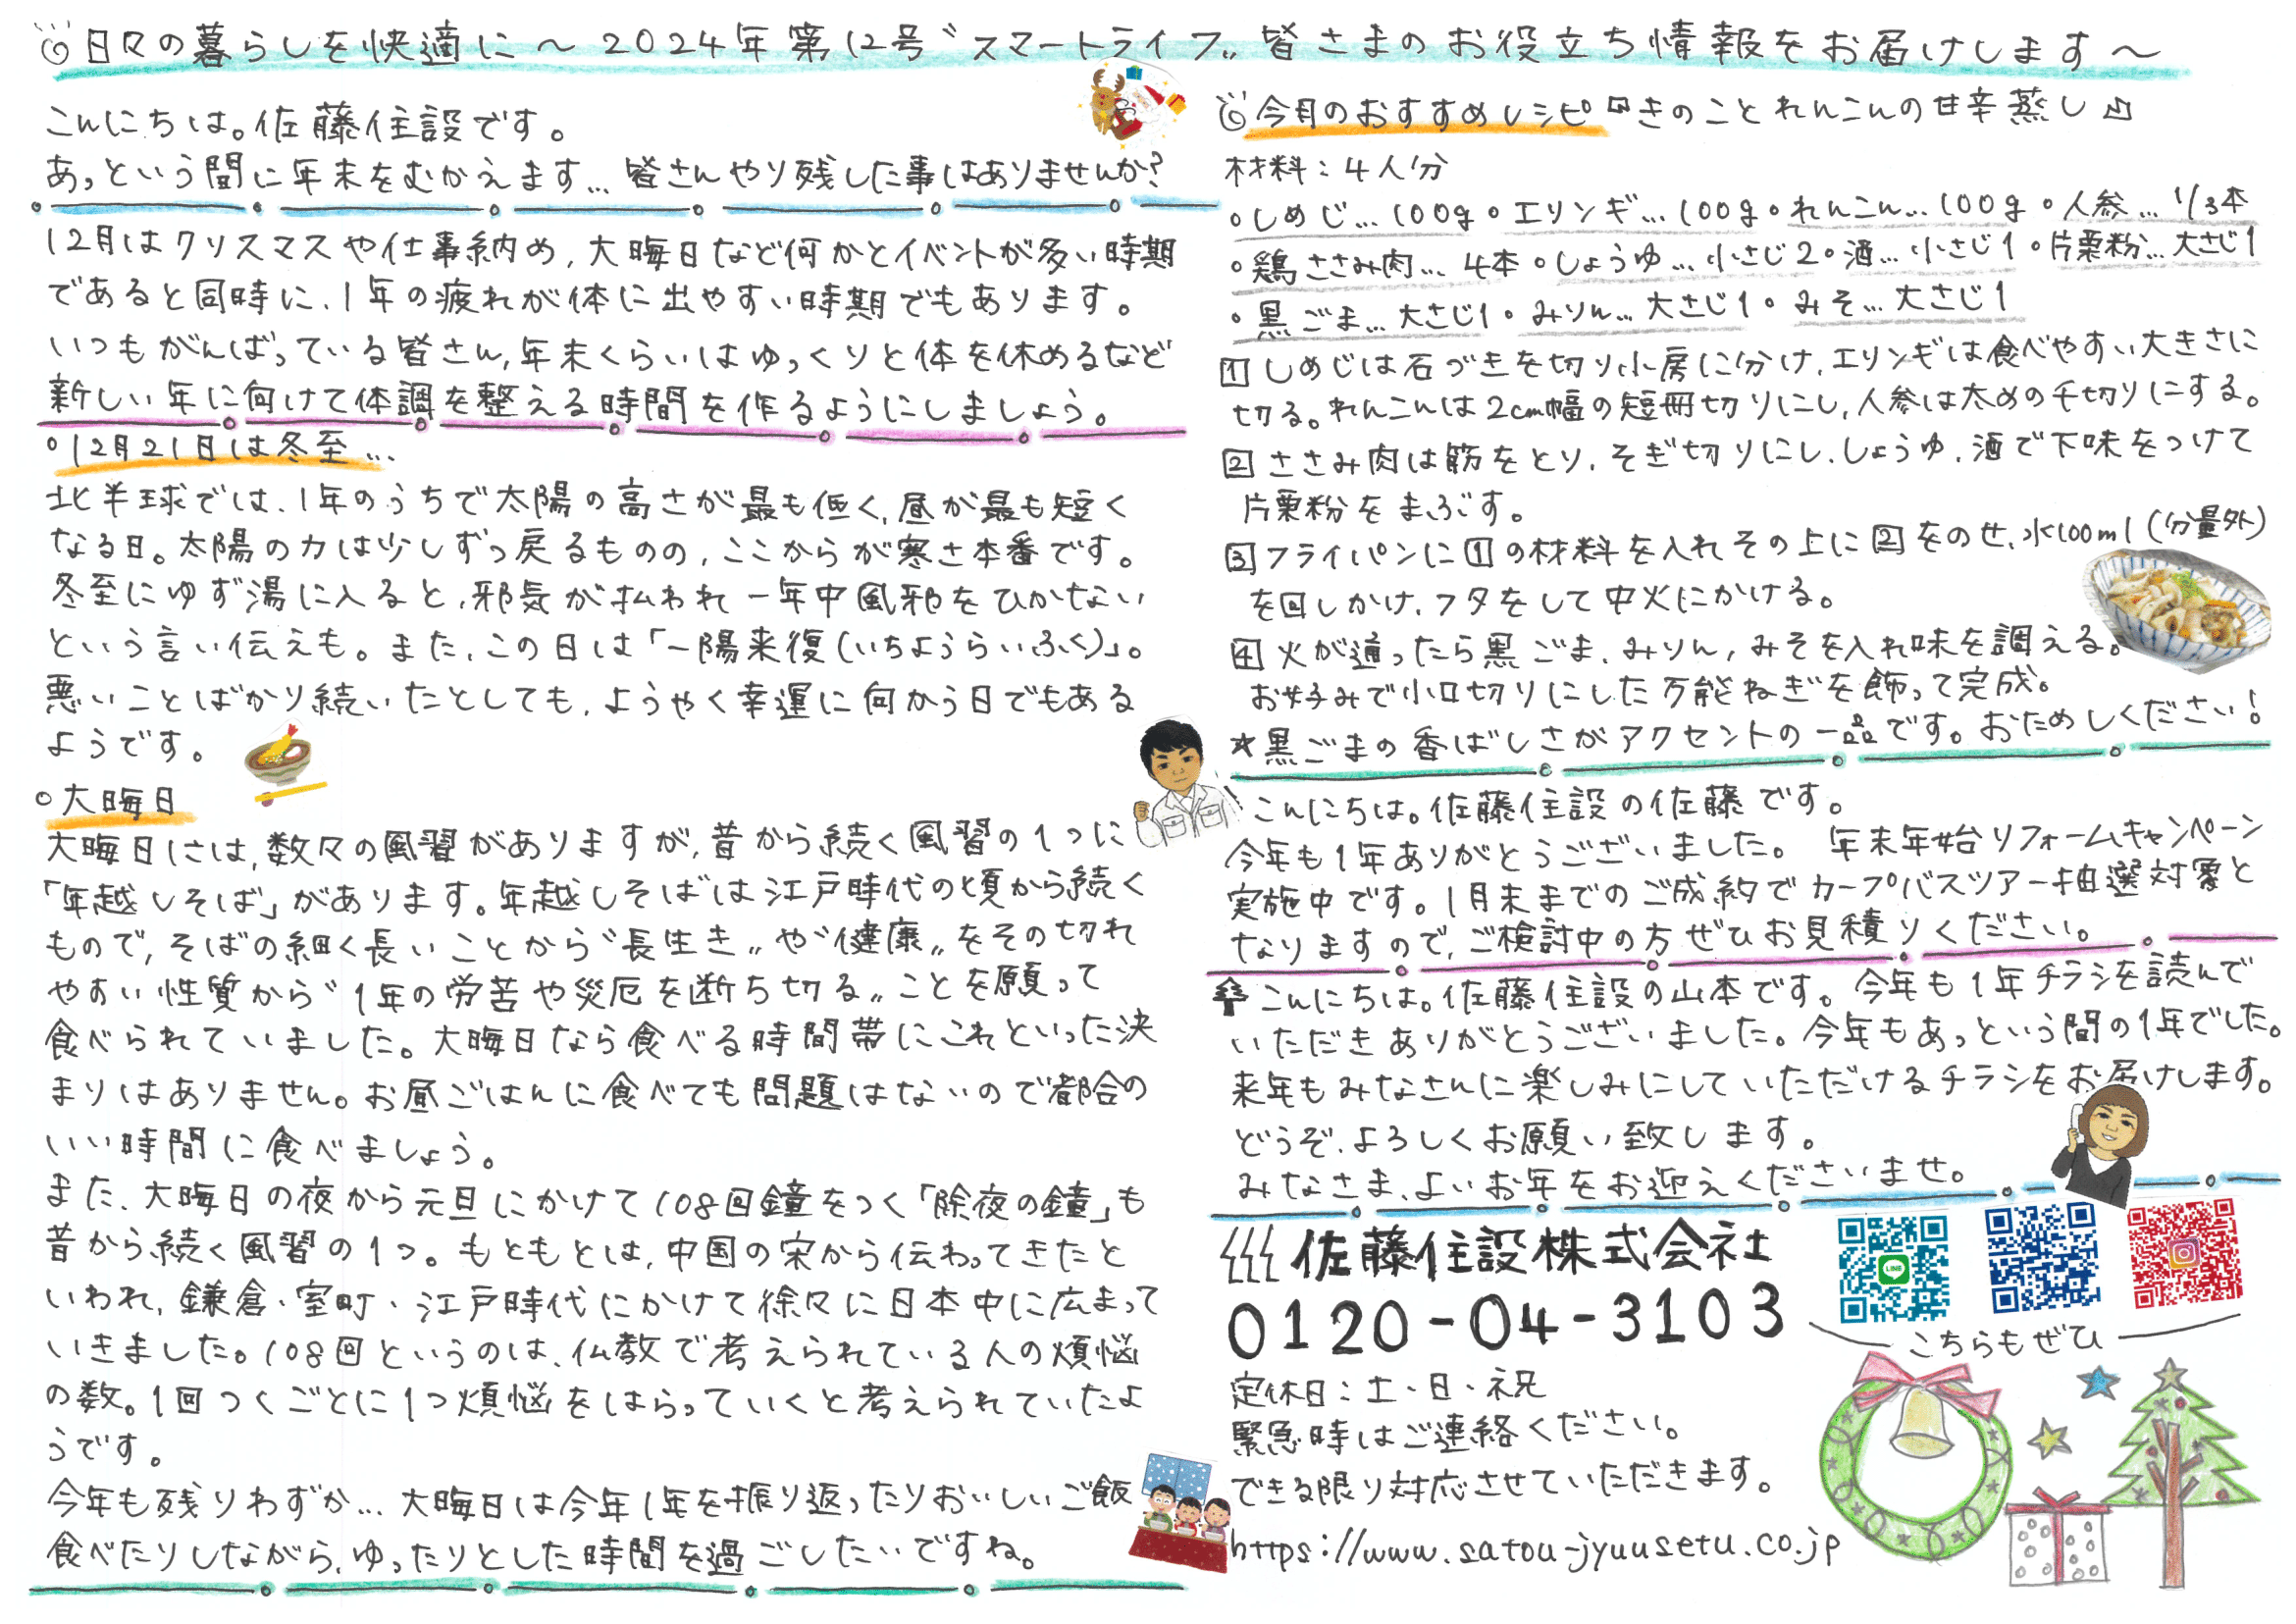 日々の暮らしを快適に～2024年第12号〝スマートライフ〟皆さまのお役立ち情報をお届けします～
こんにちは。佐藤住設です。
あっという間に年末をむかえます…皆さんやり残した事はありませんか?
12月はクリスマスや仕事納め,大晦日など何かとイベントが多い時期
であると同時に、1年の疲れが体に出やすい時期でもあります。
いつもがんばっている皆さん,年末くらいはゆっくりと体を休めるなど
新しい年に向けて体調を整える時間を作るようにしましょう。
○12月21日は冬至…
北半球では、1年のうちで太陽の高さが最も低く,昼が最も短く
なる日。太陽の力は少しずつ戻るものの,ここからが寒さ本番です。
冬至にゆず湯に入ると、邪気が払われ一年中風邪をひかない
という言い伝えも。また、この日は「一陽来復(いちようらいふく)」。
悪いことばかり続いたとしても,ようやく幸運に向かう日でもある
ようです。
○大晦日
大晦日には,数々の風習がありますが,昔から続く風習の1つに
「年越しそば」があります。年越しそばは江戸時代の頃から続く
もので,そばの細く長いことから〝長生き〟や〝健康〟をその切れ
やすい性質から〝1年の労苦や災厄を断ち切る〟ことを願って
食べられていました。大晦日なら食べる時間帯にこれといった決
まりはありません。お昼ごはんに食べても問題はないので都合の
いい時間に食べましょう。
また、大晦日の夜から元旦にかけて108回鐘をつく「除夜の鐘」も
昔から続く風習の1つ。もともとは,中国の宋から伝わってきたと
いわれ,鎌倉・室町・江戸時代にかけて徐々に日本中に広まって
いきました。108回というのは、仏教で考えられている人の煩悩
の数。1回つくごとに1つ煩悩をはらっていくと考えられていたよ
うです。
今年も残りわずか…大晦日は今年1年を振り返ったりおいしいご飯
食べたりしながら,ゆったりとした時間を過ごしたいですね。
今月のおすすめレシピ『きのことれんこんの甘辛蒸し』
材料：4人分
○しめじ…100g○エリンギ…100g○れんこん…100g○人参…1/3本
○鶏ささみ肉…4本○しょうゆ…小さじ2○酒…小さじ1○片栗粉…大さじ1
○黒ごま…大さじ1○みりん…大さじ1○みそ…大さじ1
1 しめじは石づきを切り小房に分け,エリンギは食べやすい大きさに
切る。れんこんは2cm幅の短冊切りにし,人参は太めの千切りにする。
2 ささみ肉は筋をとり,そぎ切りにし、しょうゆ,酒で下味をつけて
片栗粉をまぶす。
3 フライパンに1の材料を入れその上に2をのせ、水100ml(分量外)
を回しかけ,フタをして中火にかける。
4 火が通ったら黒ごま、みりん,みそを入れ味を調える。
お好みで小口切りにした万能ねぎを飾って完成。
☆黒ごまの香ばしさがアクセントの一品です。おためしください！
こんにちは。佐藤住設の佐藤です。
今年も1年ありがとうございました。 年末年始リフォームキャンペーン
実施中です。1月末までのご成約でカープバスツアー抽選対象と
なりますので,ご検討中の方ぜひお見積りください。
こんにちは。佐藤住設の山本です。今年も1年チラシを読んで
いただきありがとうございました。今年もあっという間の1年でした。
来年もみなさんに楽しみにしていただけるチラシをお届けします。
どうぞ、よろしくお願い致します。
みなさま、よいお年をお迎えくださいませ。
佐藤住設株式会社
0120-04-3103
LINE
こちらもぜひ
定休日：土・日・祝
緊急時はご連絡ください。
できる限り対応させていただきます。
https://www.satou-jyuusetu.co.jp